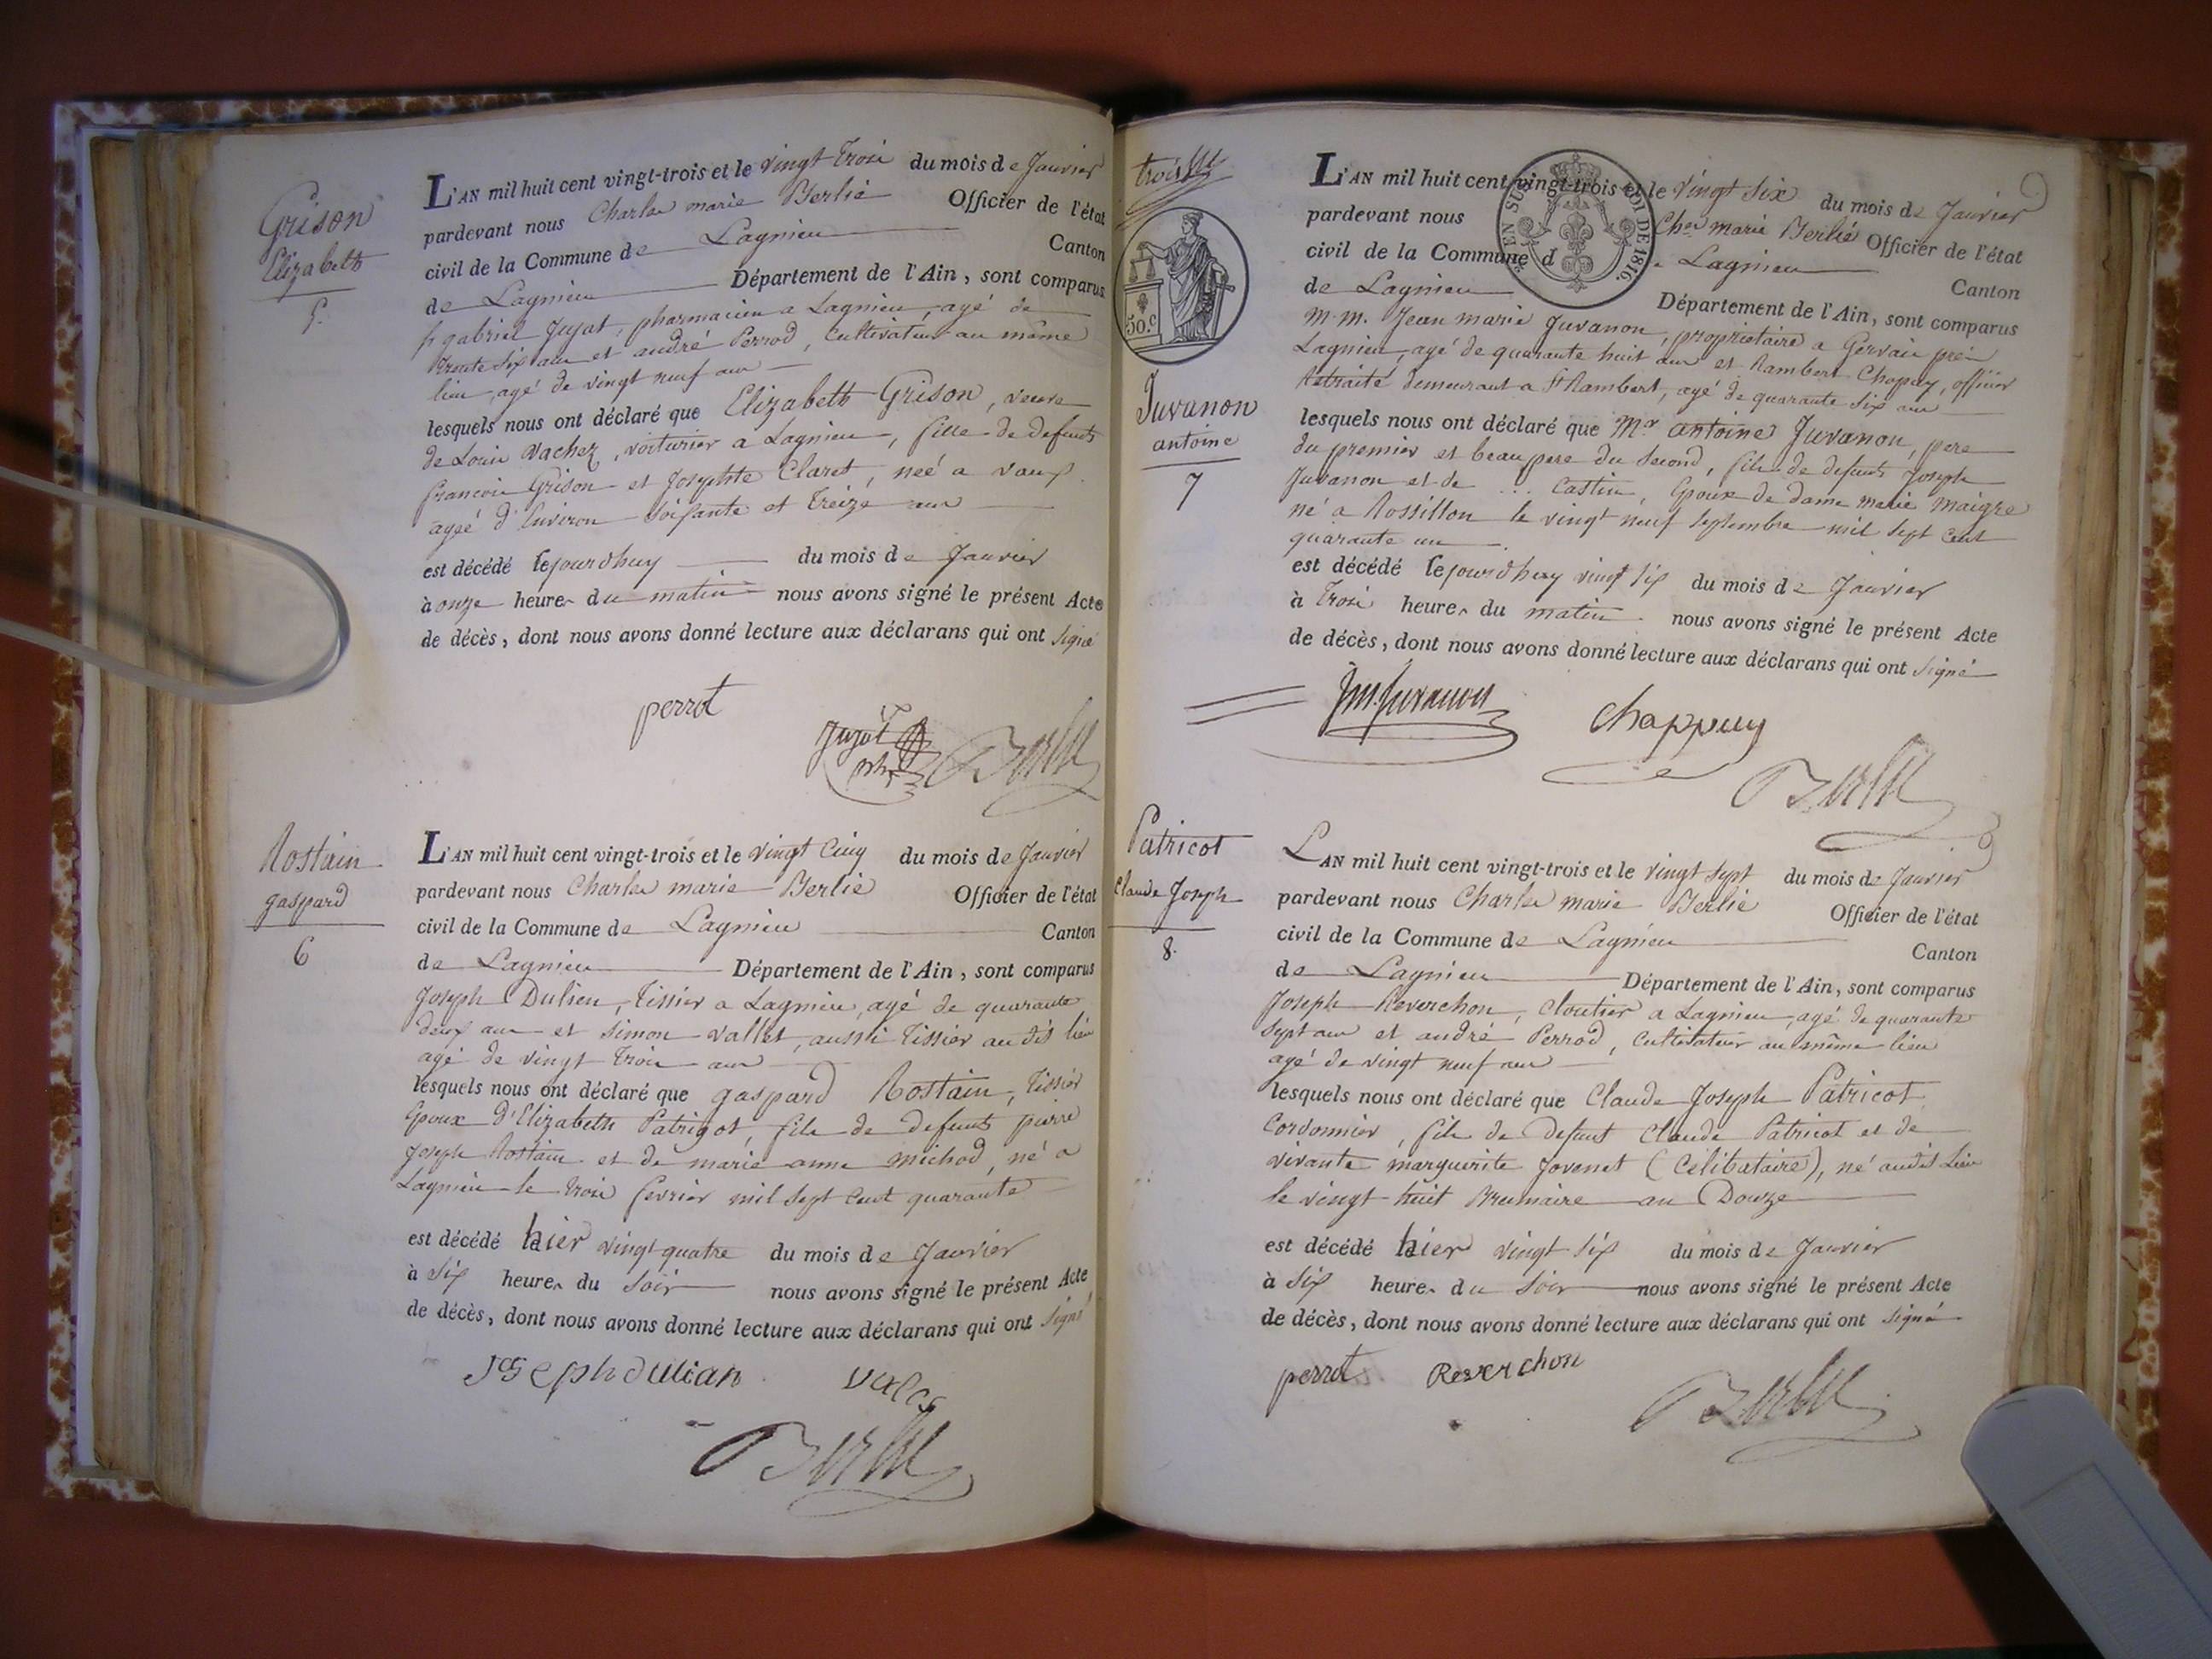 Grison
Elizabeth
5.
L'AN mil huit cent vingt-trois et le vingt trois du mois de Janvier
pardevant nous Charles marie Berlié Officier de l'état
civil de la Commune de Lagnieu Canton
de Lagnieu Département de l'Ain, sont comparus
gabriel Jujat, pharmacien a Lagnieu, agé de
trente six ans et andré Perrod, Cultivateur au même
lieu agé de vingt neuf ans
lesquels nous ont déclaré que Elizabeth Grison, veuve
de Louis Vachez, voiturier a Lagnieu, fille de defunts
francois Grison et Josephte Claret, neé a vaux
ageé d'Environ soixante et treize ans
est décédé le jourdhuy du mois de Janvier
à onze heures du matin nous avons signé le présent Acte
de décès, dont nous avons donné lecture aux déclarans qui ont signé
perrot
Jujat
Berlié
Rostain
gaspard
6
L'AN mil huit cent vingt-trois et le vingt Cinq du mois de Janvier
pardevant nous Charles marie Berlié Officier de l'état
civil de la Commune de Lagnieu Canton
de Lagnieu Département de l'Ain, sont comparus
Joseph Dulien, tissier a Lagnieu, agé de quarante
deux ans et simon vallet, aussi tissier au dit lieu
agé de vingt trois ans
lesquels nous ont déclaré que gaspard Rostain, tissier
Epoux d'Elizabeth Patrigot, fils de defunts pierre
Joseph Rostain et de marie anne michod, né a
Lagnieu le trois fevrier mil sept cent quarante
est décédé hier vingt quatre du mois de Janvier
à six heures du soir nous avons signé le présent Acte
de décès, dont nous avons donné lecture aux déclarans qui ont signé
Joseph dulian
Berlié
trois
50.c
EN SUS LOI DE 1816.
Juvanon
antoine
7
L'AN mil huit cent vingt-trois et le vingt six du mois de Janvier
pardevant nous Ches marie Berlié Officier de l'état
civil de la Commune de Lagnieu Canton
de Lagnieu Département de l'Ain, sont comparus
M.M. Jean marie Juvanon, proprietaire a Gervais près
Lagnieu, agé de quarante huit ans et Rambert Chapuy, officier
Retraité demeurant a St Rambert, agé de quarante six ans
lesquels nous ont déclaré que Mr antoine Juvanon, pere
du premier et beau pere du second, fils de defunts Joseph
Juvanon et de ... Castin, Epoux de dame marie Maigre
né a Rossillon le vingt neuf septembre mil sept cent
quarante un
est décédé le jourdhuy vingt six du mois de Janvier
à trois heures du matin nous avons signé le présent Acte
de décès, dont nous avons donné lecture aux déclarans qui ont signé
Jm. Juvanon
Chappuy
Berlié
Patricot
Claude Joseph
8.
L'AN mil huit cent vingt-trois et le vingt sept du mois de Janvier
pardevant nous Charles marie Berlié Officier de l'état
civil de la Commune de Lagnieu Canton
de Lagnieu Département de l'Ain, sont comparus
Joseph Reverchon, Cloutier a Lagnieu, agé de quarante
sept ans et andré Perrod, Cultivateur au même lieu
agé de vingt neuf ans
lesquels nous ont déclaré que Claude Joseph Patricot
Cordonnier, fils de Defunt Claude Patricot et de
vivante marguerite Jovenet (Celibataire), né audit Lieu
le vingt huit Brumaire an Douze
est décédé hier vingt six du mois de Janvier
à six heures du soir nous avons signé le présent Acte
de décès, dont nous avons donné lecture aux déclarans qui ont signé
perrot
Reverchon
Berlié